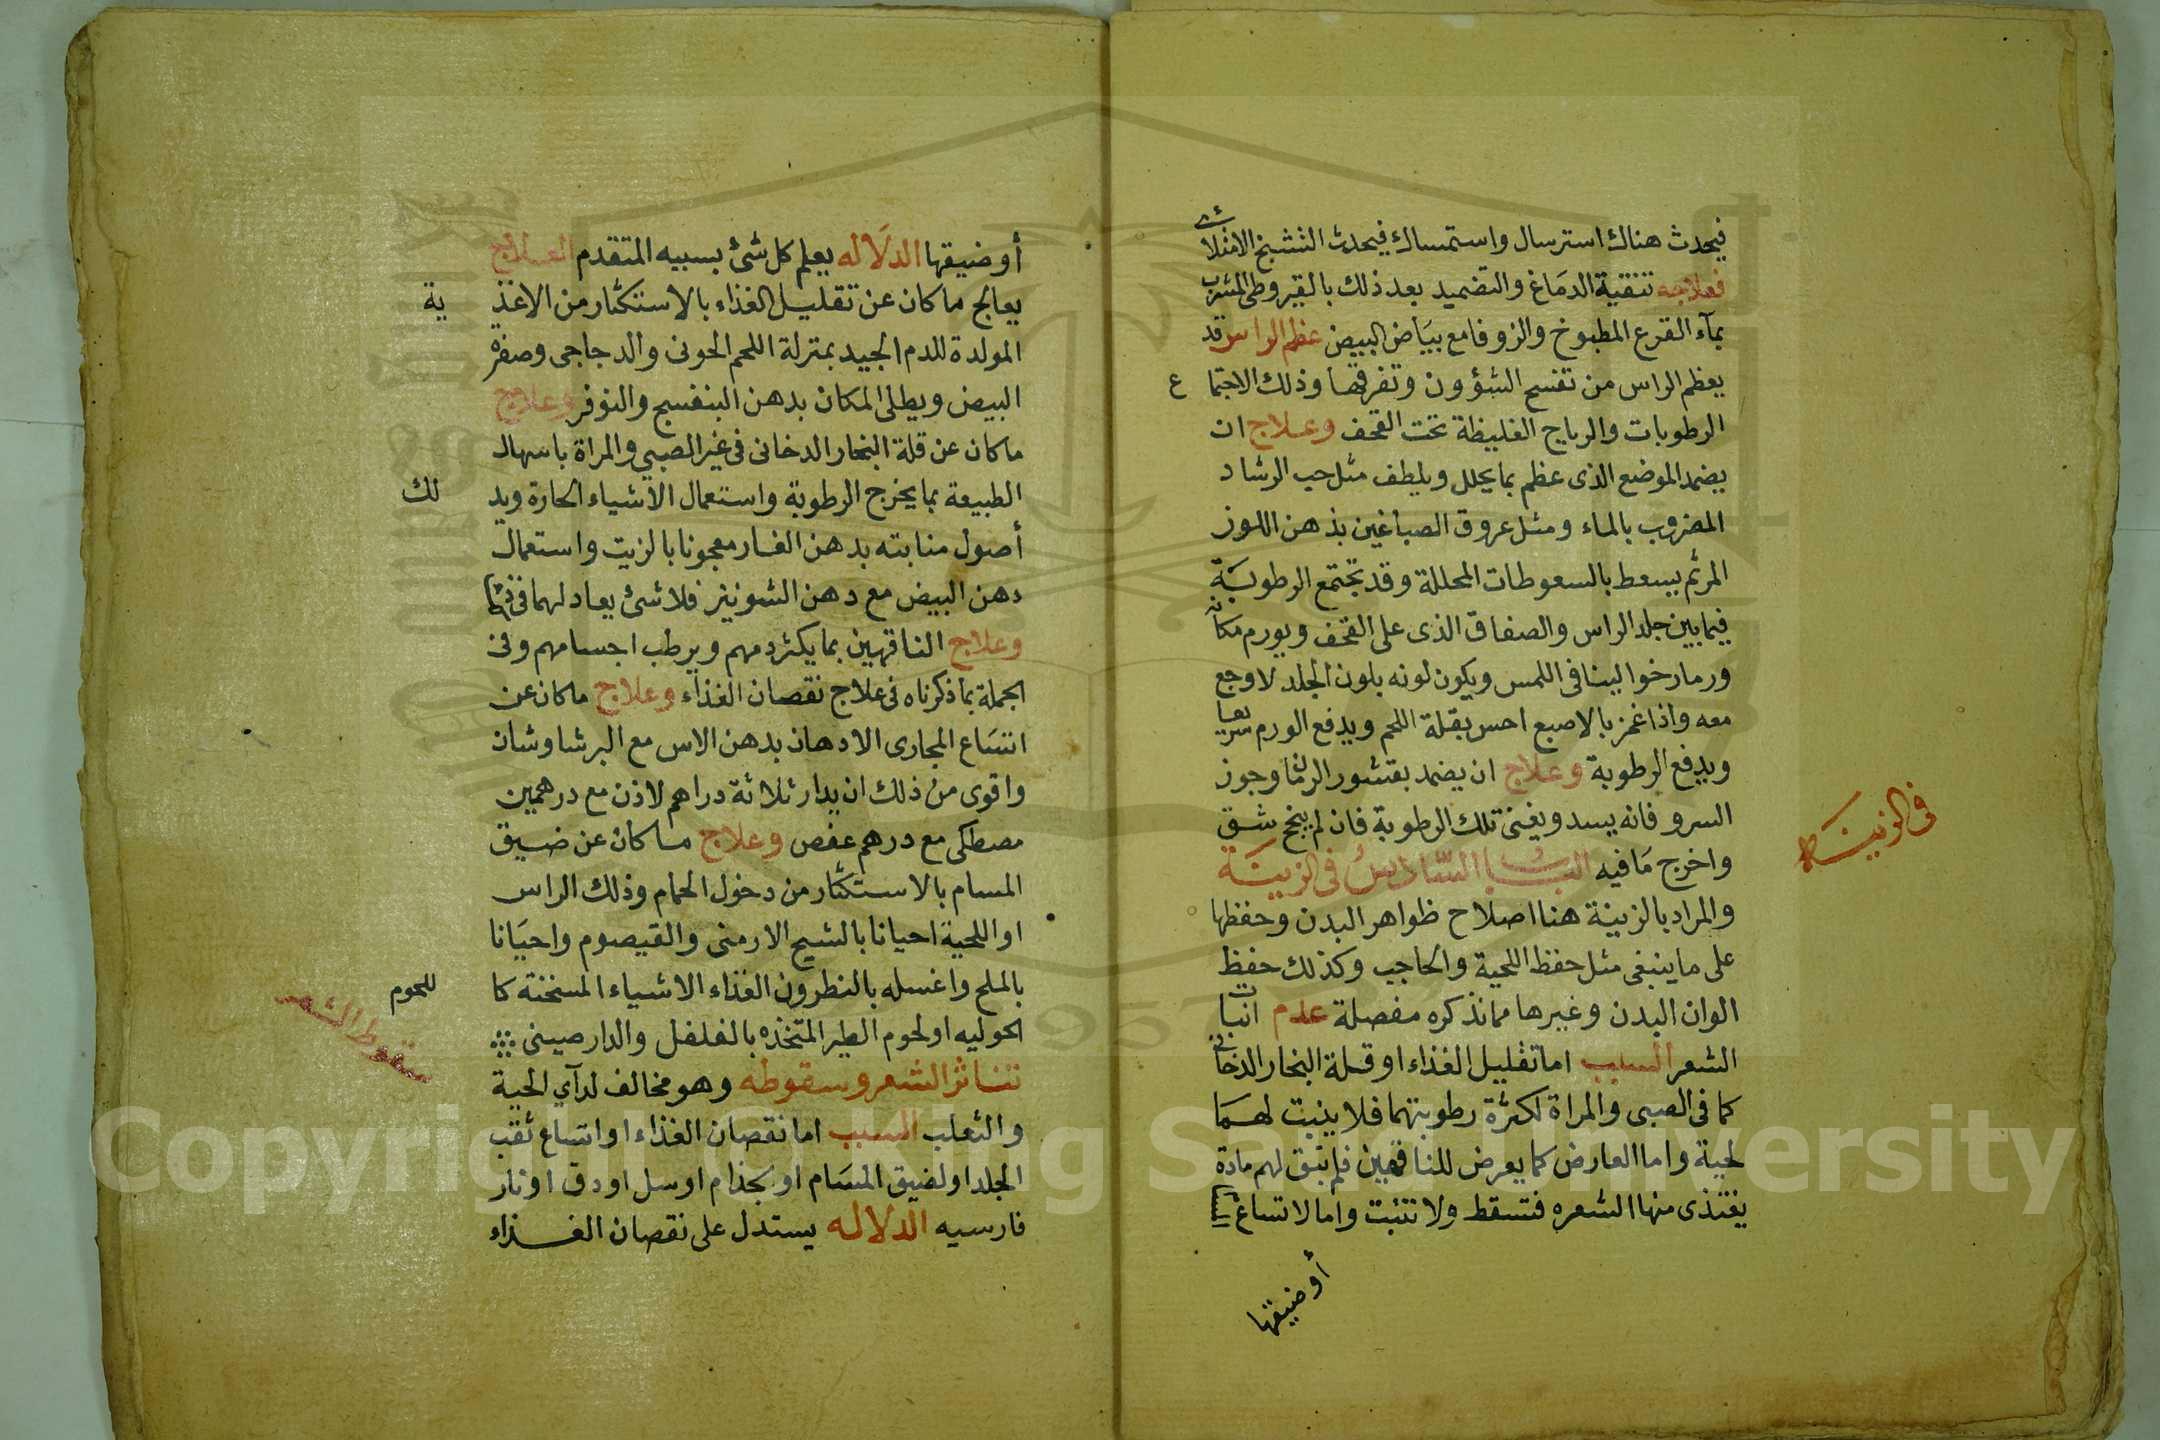 فيحدث هناك استرسال واستمساك فيحدث التشنج الامتلائي
فعلاجه تنقية الدماغ والتضميد بعد ذلك بالقيروطى المشرب
بمآء القرع المطبوخ والزوفا مع بياض البيض عظم الراس قد
يعظم الراس من تفسح الشؤون وتفرقها وذلك الاجتماع
الرطوبات والرياح الغليظة تحت القحف وعلاج ان
يضمد الموضع الذى عظم بما يحلل ويلطف مثل حب الرشاد
المضروب بالماء ومثل عروق الصباغين بذهن اللوز
المر ثم يسعط بالسعوطات المحللة وقد تجتمع الرطوبة
فيما بين جلد الراس والصفاق الذى على القحف ويورم مكانه
ورما رخوا لينا فى اللمس ويكون لونه بلون الجلد لا وجع
معه واذا غمز بالاصبع احس بقلة اللحم ويدفع الورم سريعا
ويدفع الرطوبة وعلاج ان يضمد بقشور الرمان وجوز
السرو فانه يسد ويفنى تلك الرطوبة فان لم ينجح شق
واخرج مافيه الباب السادس فى الزينة
فى الزينة
والمراد بالزينة هنا اصلاح ظواهر البدن وحفظها
على ما ينبغى مثل حفظ اللحية والحاجب وكذلك حفظ
الوان البدن وغيرها مما نذكره مفصلة عدم انبات
الشعر السبب اما تقليل الغذاء او قلة البخار الدخانى
كما فى الصبى والمراة لكثرة رطوبتهما فلا ينبت لهما
لحية واما العارض كما يعرض للناقهين فلم تبق لهم مادة
يغتذى منها الشعره فتسقط ولا تنبت واما لاتساع
أو ضيقها
أو ضيقها الدلاله يعلم كل شئ بسببه المتقدم العلاج
يعالج ما كان عن تقليل الغذاء بالاستكثار من الاغذية
المولدة للدم الجيد بمنزلة اللحم الحولى والدجاجى وصفره
البيض ويطلى المكان بدهن البنفسج والنوفر وعلاج
ماكان عن قلة البخار الدخانى فى غير الصبي والمراة باسهال
الطبيعة بما يخرج الرطوبة واستعمال الاشياء الحارة ويدلك
أصول منابته بدهن الغار معجونا بالزيت واستعمال
دهن البيض مع دهن الشونيز فلا شئ يعادلهما فى
وعلاج الناقهين بما يكثر دمهم ويرطب اجسامهم وفى
الجملة بما ذكرناه فى علاج نقصان الغذاء وعلاج ماكان عن
اتساع المجارى الادهان بدهن الاس مع البرشاوشان
واقوى من ذلك ان يدار ثلاثة دراهم لاذن مع درهمين
مصطكى مع درهم عفص وعلاج ماكان عن ضيق
المسام بالاستكثار من دخول الحمام وذلك الراس
او اللحية احيانا بالشيح الارمنى والقيصوم واحيانا
بالملح واغسله بالنطرون الغذاء الاشياء المسخنة كاللحوم
الحوليه او لحوم الطير المتخذه بالفلفل والدارصينى
سقوط الشعر
تناثر الشعر وسقوطه وهو مخالف لدآي الحية
والثعلب السبب اما نقصان الغذاء او اتساع ثقب
الجلد او لضيق المسام او بجذام او سل او دق او نار
فارسيه الدلاله يستدل على نقصان الغذاء
Copyright © King Saud University